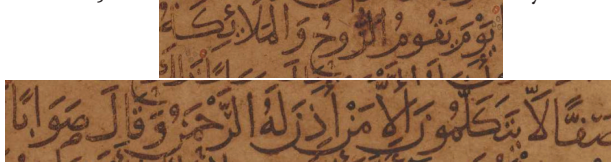 يَوْمَ يَقُومُ الرُّوحُ وَالْمَلَائِكَةُ
صَفًّا لَّا يَتَكَلَّمُونَ إِلَّا مَنْ أَذِنَ لَهُ الرَّحْمَنُ وَقَالَ صَوَابًا